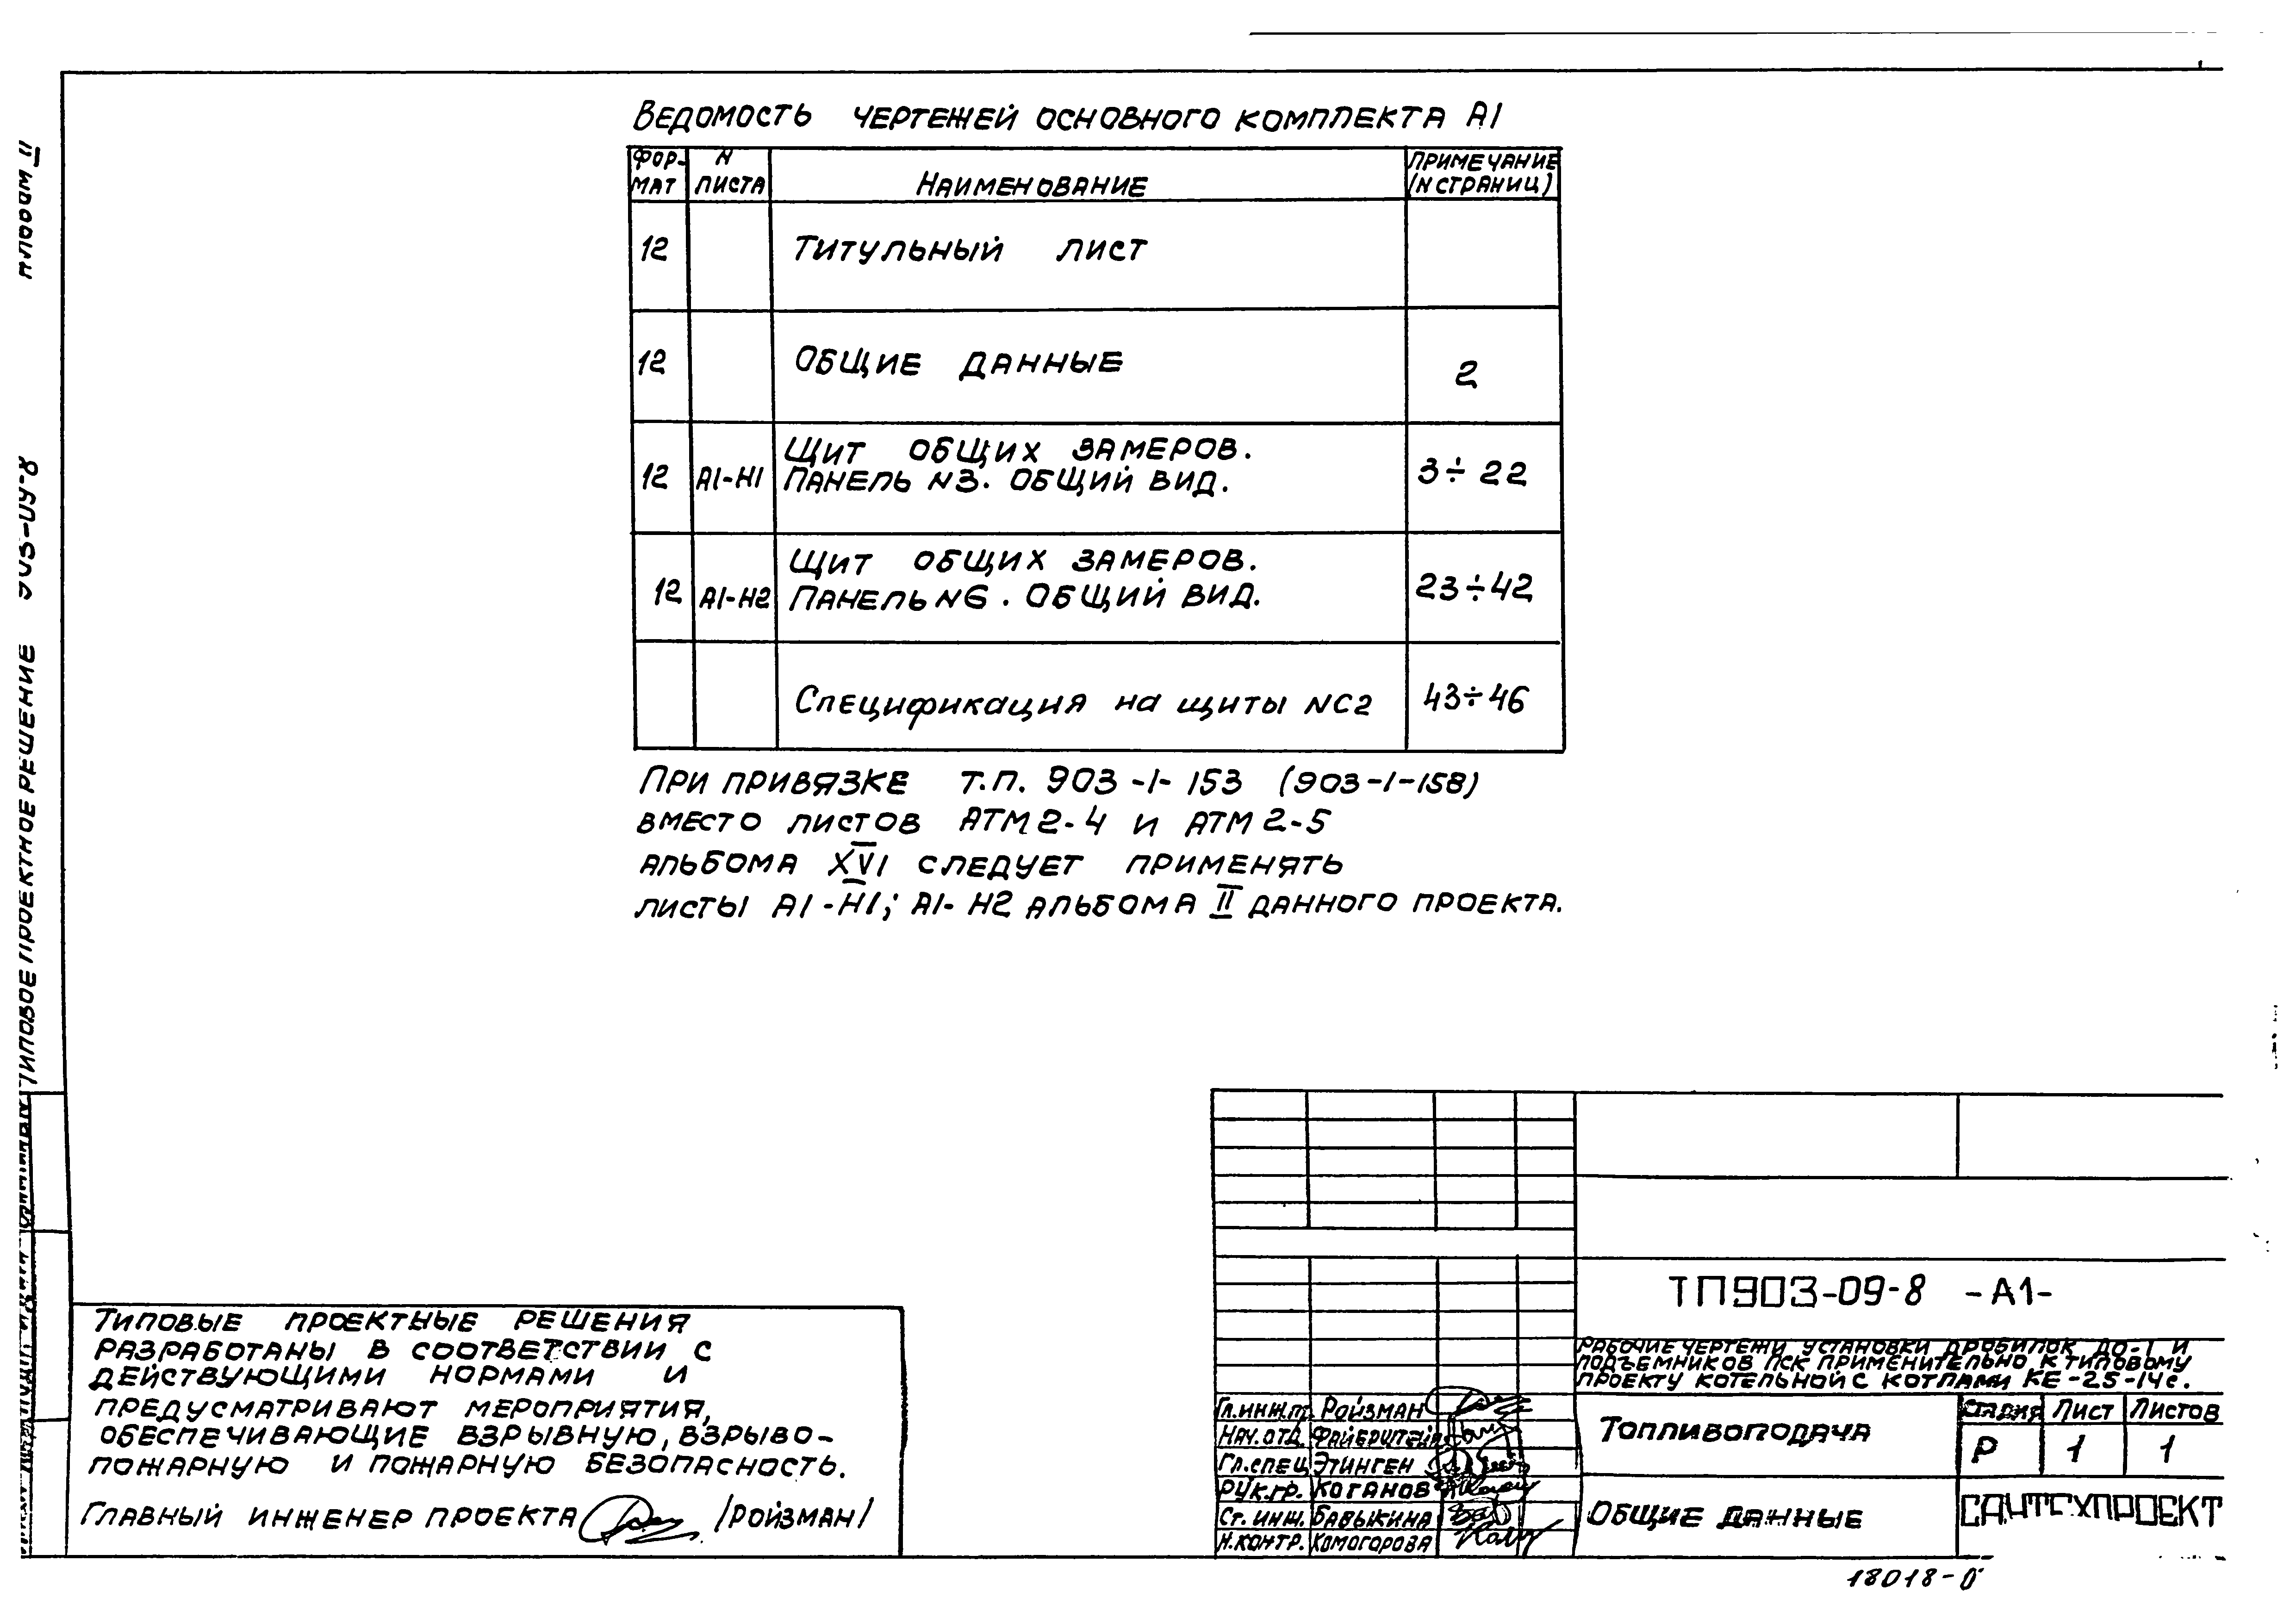 Ведомость чертежей основного комплекта А1
Фор-
мат
N
листа
Наименование
Примечание
(N страниц)
12 Титульный лист
12 Общие данные 2
12 А1-Н1 Щит общих замеров.
Панель N3. Общий вид. 3÷22
12 А1-Н2 Щит общих замеров.
Панель N6. Общий вид. 23÷42
Спецификация на щиты NС2 43÷46
При привязке т.п. 903-1-153 (903-1-158)
вместо листов АТМ2-4 и АТМ2-5
альбома XVI следует применять
листы А1-Н1; А1-Н2 альбома II данного проекта.
Альбом II
Типовое проектное решение
Типовые проектные решения
разработаны в соответствии с
действующими нормами и
предусматривают мероприятия,
обеспечивающие взрывную, взрыво-
пожарную и пожарную безопасность.
Главный инженер проекта /Ройзман/
ТП903-09-8 -А1-
Рабочие чертежи установки дробилок ДО-1 и
подъемников ПСК применительно к типовому
проекту котельной с котлами КЕ-25-14с.
Гл.инж.пр. Ройзман
Нач.отд. Файерштейн
Гл.спец Этинген
Рук.гр. Коганов
Ст. инж. Бавыкина
Н.контр. Комогорова
Топливоподача
Стадия Лист Листов
Р 1 1
Общие данные
САНТЕХПРОЕКТ